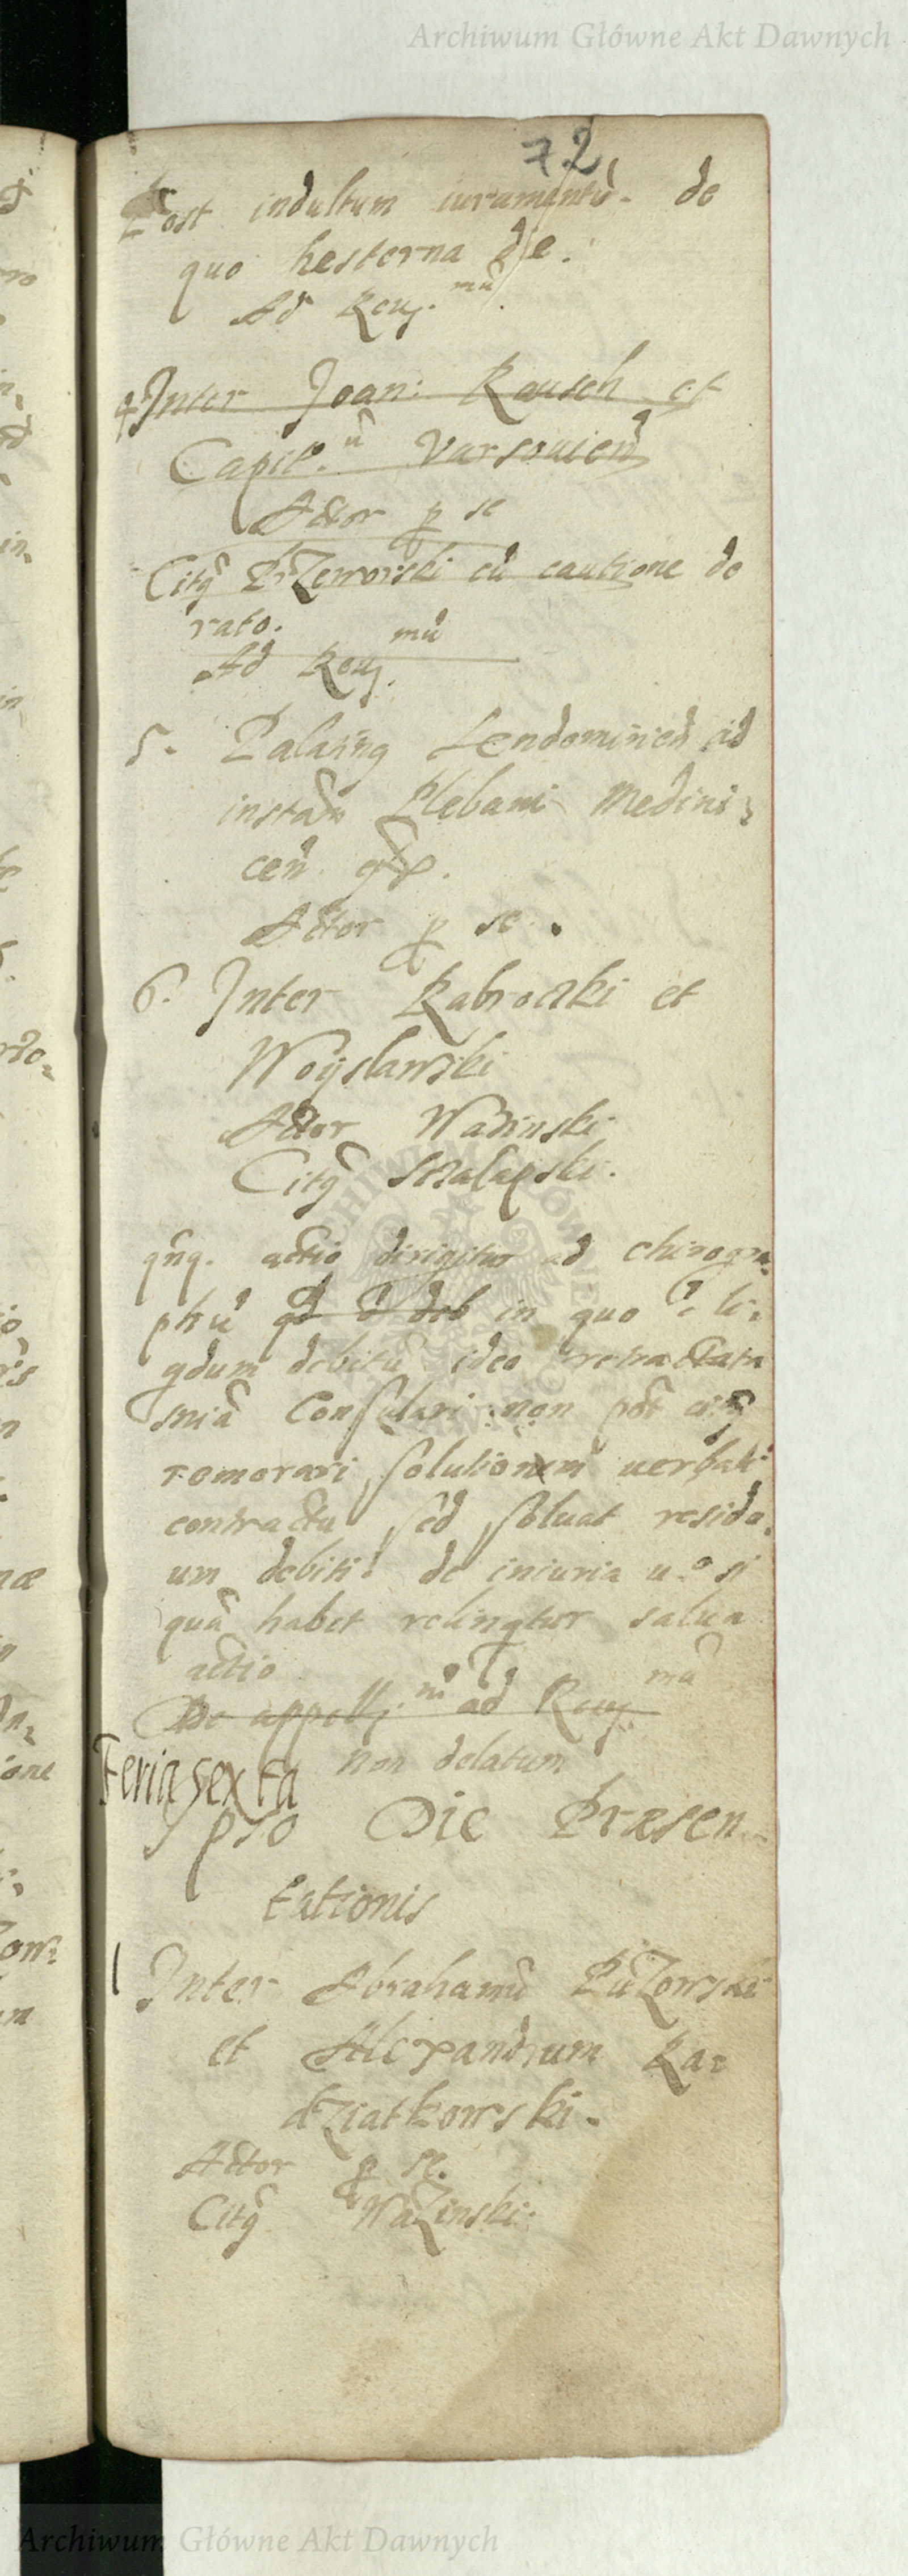 Archiwum Główne Akt Dawnych
72
Post indultum iuramentū. de
quo hesterna die.
Ad Reuj. mū.
4 Inter Joan: Rausch et
Capit.ū Varsauien̄
Actor ꝑ se
Citꝗ Przeworski cū cautione de
rato.
Ad Reuj. mū
5. Palatinꝗ Sendomirien̄ ad
instan̄ Plebani Medini=
cen̄
Actor ꝑ se.
6. Inter Rabrocki et
Woÿslawski
Actor Wadinski
Citꝗ
actio dirigitur ad chirogra=
phū in quo ē li=
qdum debitū ideo retractata
snīa Consulari non pōt
remorari solutionem uerbali
contractu sed soluat residu=
um debiti. de iniuria u.º si
quā habet relinqtur salua
actio
De appell.ni ad Reuj. mū
non delatum
Feria sexta
pso Die Præsen=
tationis
1 Inter Abrahamū Puzowski
et Alexandrum Ra=
dziatkowski.
Actor ꝑ se.
Citꝗ Wazinski.
Archiwum Główne Akt Dawnych